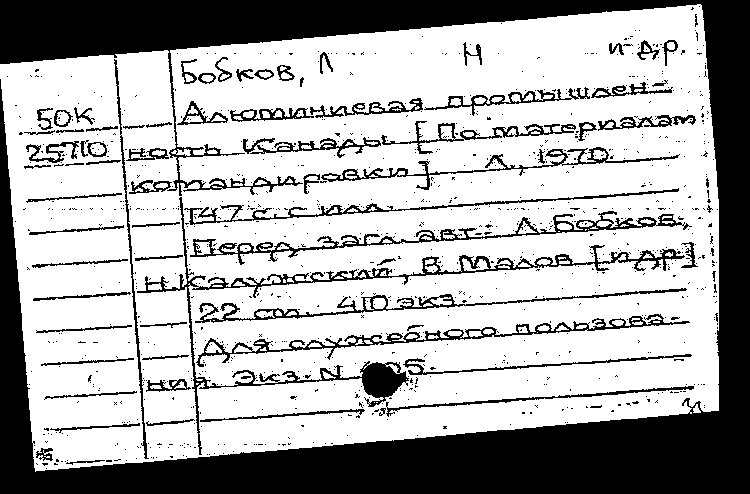 Бобков, Л Н и др.
50К Алюминиевая промышлен-
25710 ность Канады. [По материалам
командировки]. Л., 1970.
147 с. с илл.
Перед загл. авт.: Л. Бобков,
Н. Калужский, В. Малов [и др].
22 см. 410 экз.
Для служебного пользова-
ния. Экз. N